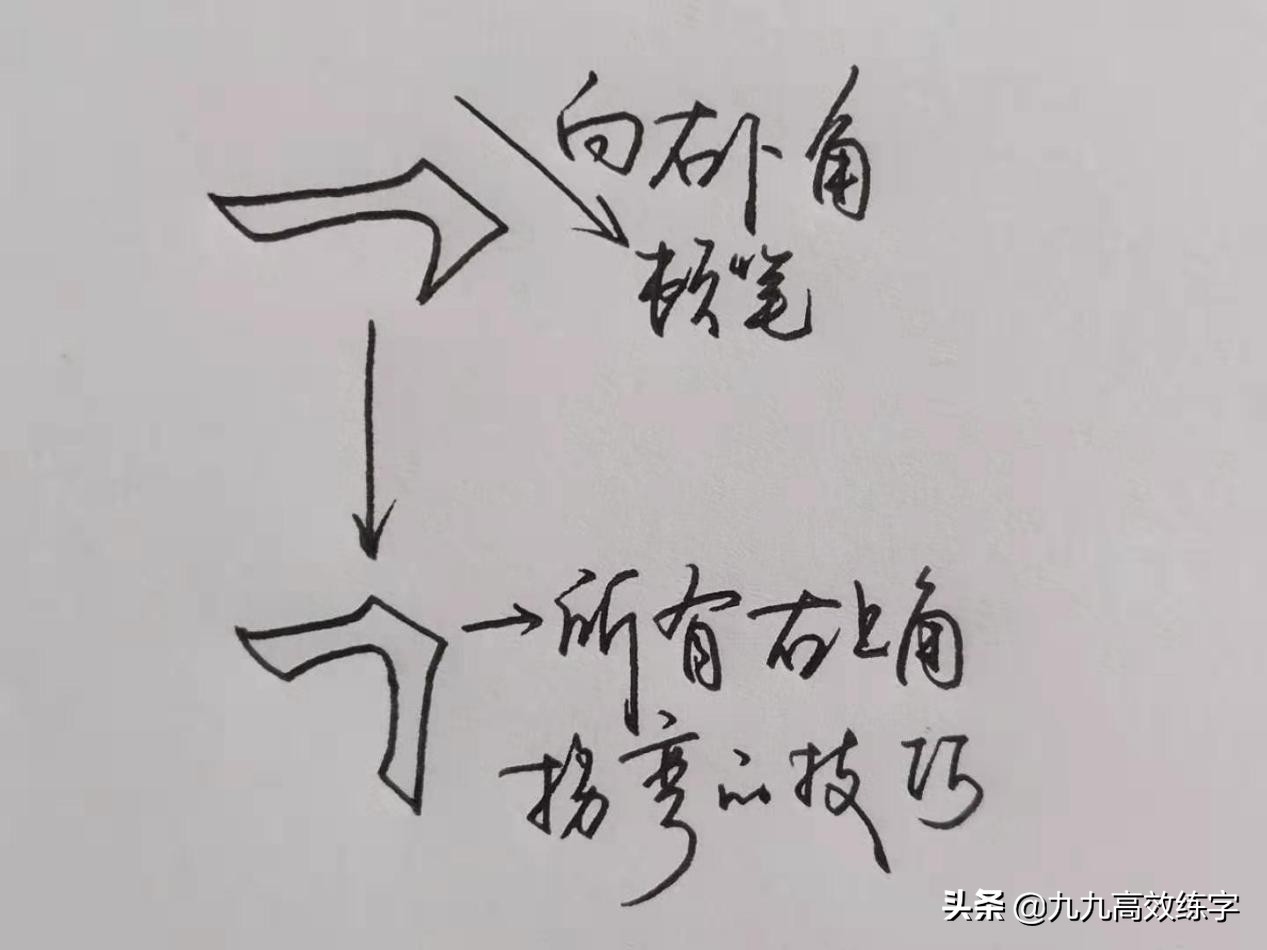 向右下角
顿笔
所有右上角
拐弯的技巧
头条 @九九高效练字